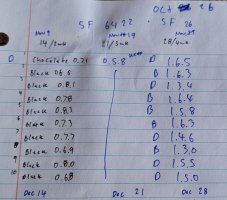 OCT 26
SF 6422 SF 26
Nov 9 Nov 29
14/2wk 21/3wk 28/4wk
0 Chocolate 0.71 0.58 D 1.6.5
Black 0.6.5 B 1.6.3
Black 0.8.1 D 1.3.4
Black 0.78 B 1.6.4
Black 0.83 D 1.5.8
Black 0.73 B 1.6.3
Black 0.7.7 D 1.4.6
Black 0.6.9 B 1.3.0
Black 0.8.0 D 1.5.5
10 Black 0.68 D 1.5.0
Dec 14 Dec 21 Dec 28